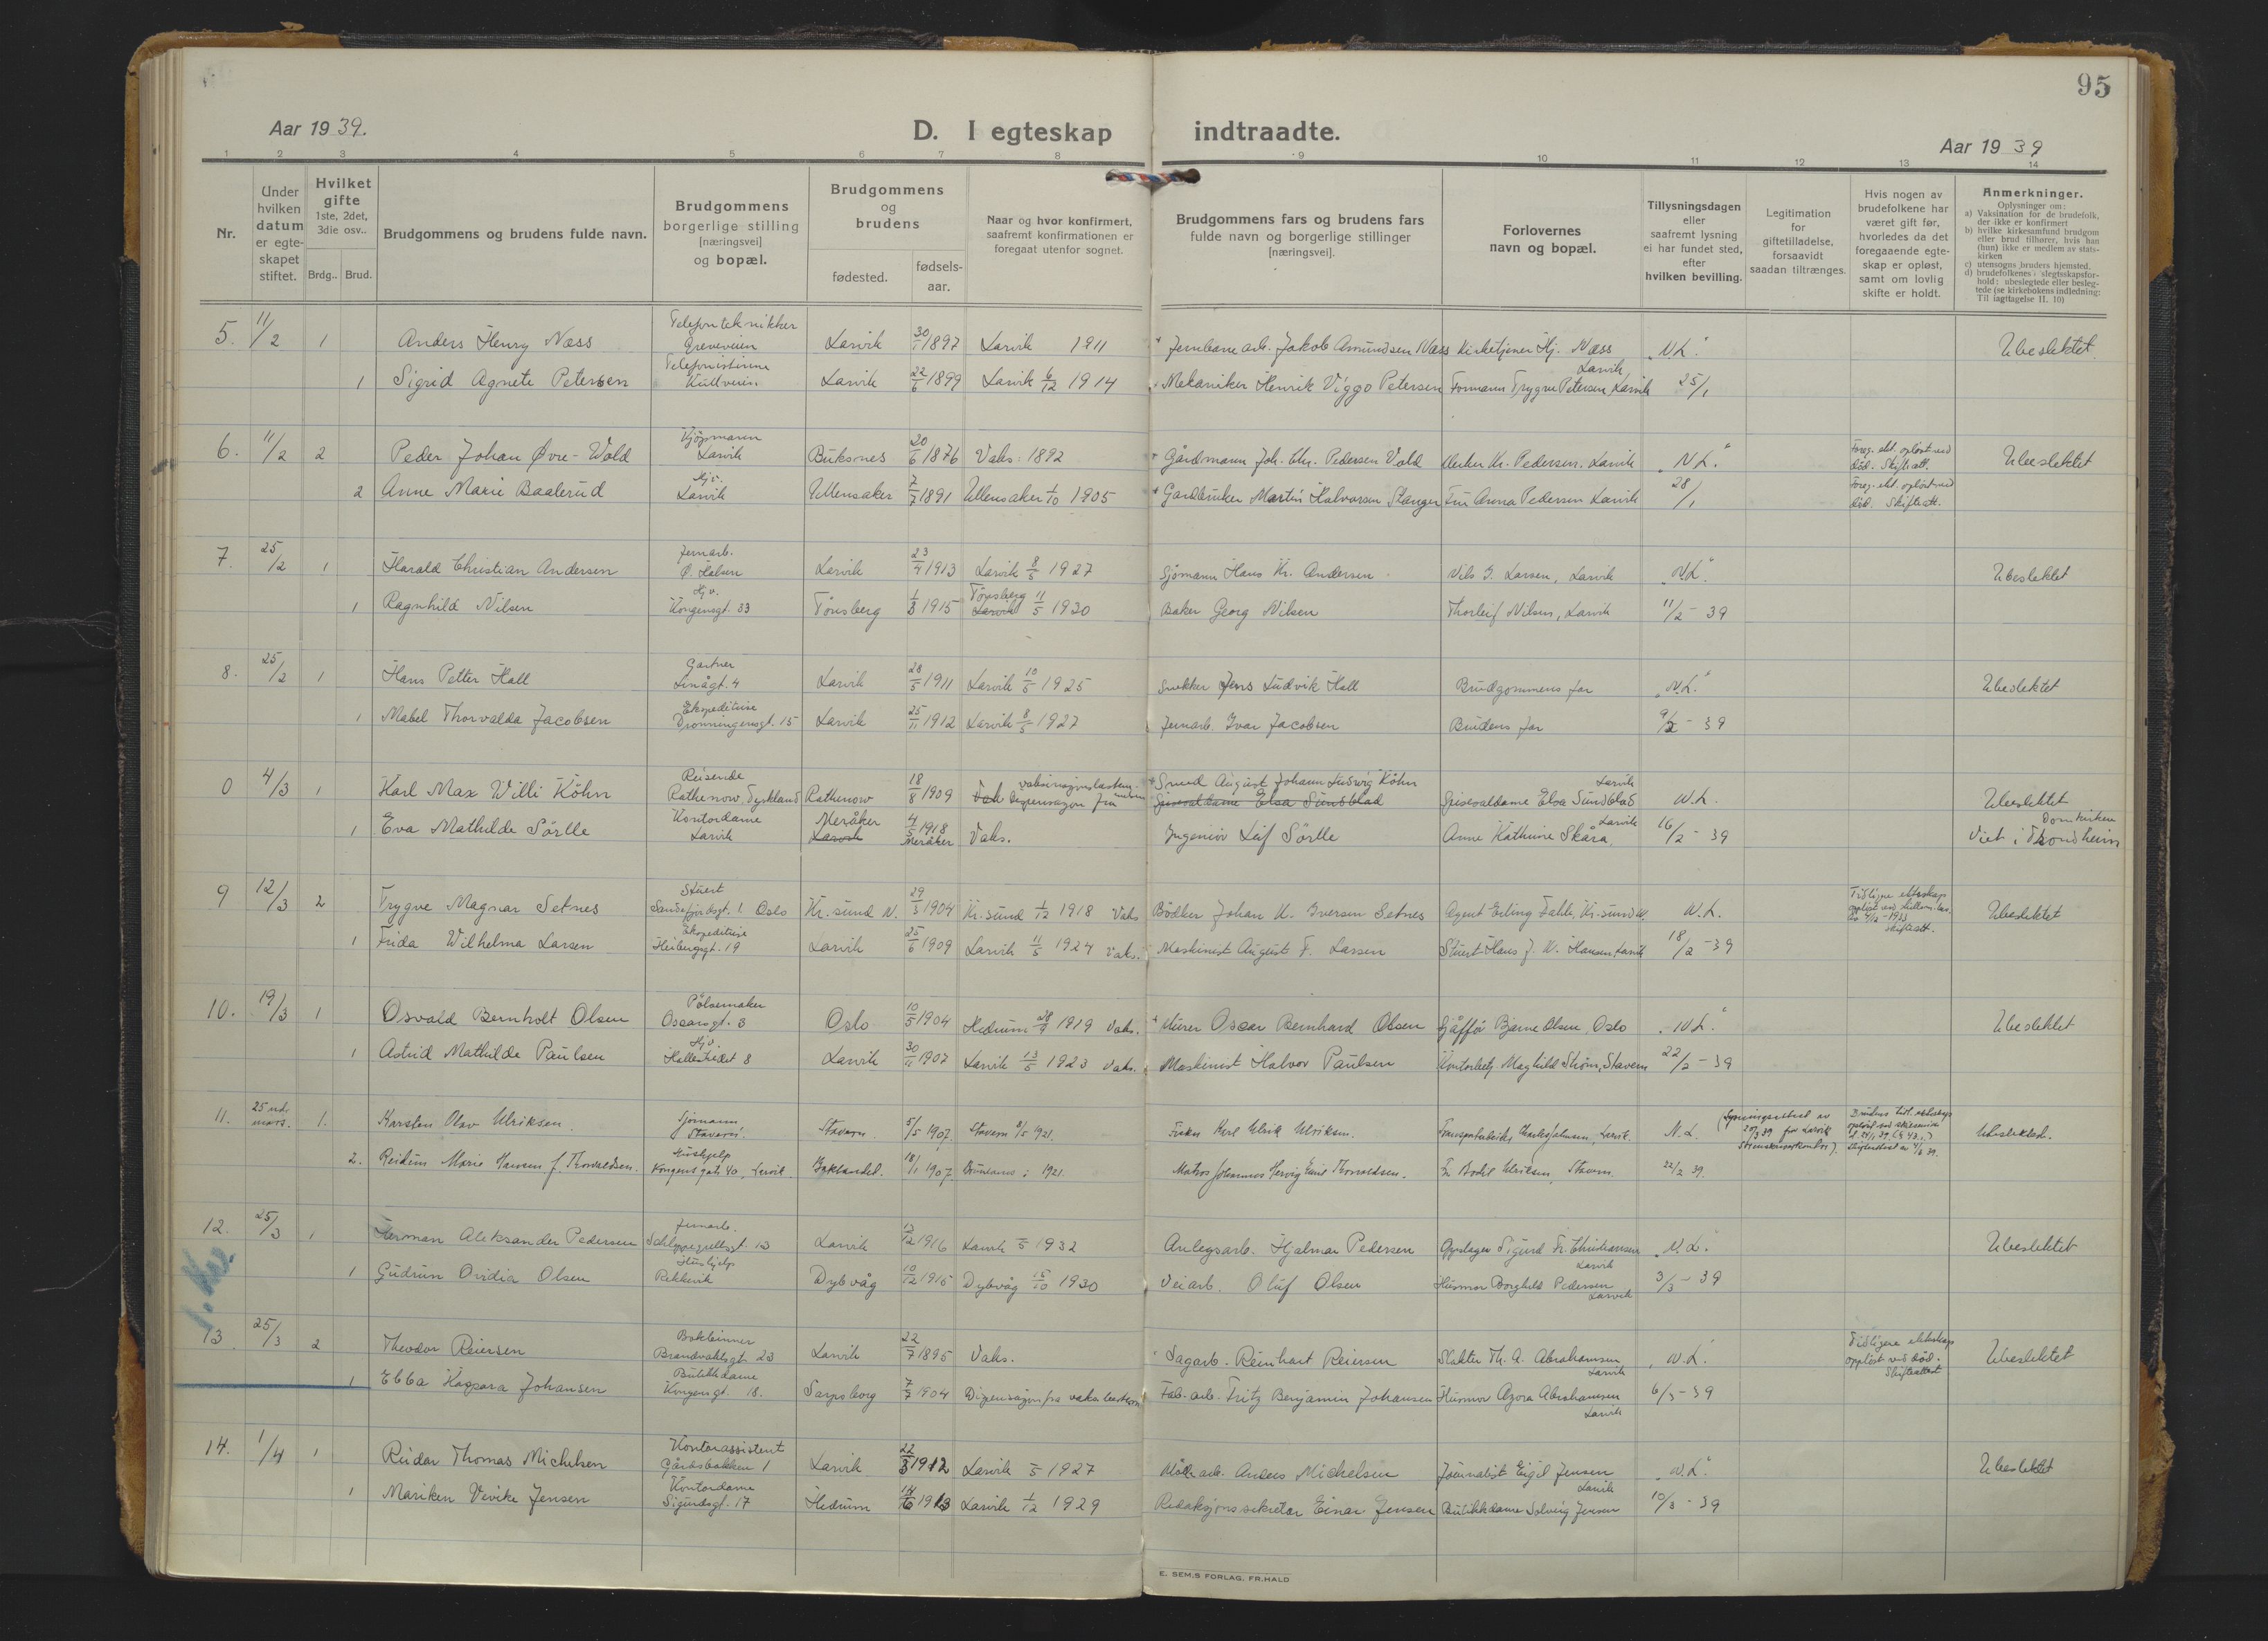 95
Aar 1939.
D. I egteskap indtraadte.
Aar 1939
1 2 3 4 5 6 7 8 9 10 11 12 13 14
Nr.
Under hvilken datum er egteskapet stiftet.
Hvilket gifte 1ste, 2det, 3die osv..
Brdg.. Brud.
Brudgommens og brudens fulde navn.
Brudgommens borgerlige stilling [næringsvei] og bopæl.
Brudgommens og brudens
fødested.
fødsels-aar.
Naar og hvor konfirmert, saafremt konfirmationen er foregaat utenfor sognet.
Brudgommens fars og brudens fars fulde navn og borgerlige stillinger [næringsvei].
Forlovernes navn og bopæl.
Tillysningsdagen eller saafremt lysning ei har fundet sted, efter hvilken bevilling.
Legitimation for giftetilladelse, forsaavidt saadan tiltrænges.
Hvis nogen av brudefolkene har været gift før, hvorledes da det foregaaende egteskap er opløst, samt om lovlig skifte er holdt.
Anmerkninger.
Oplysninger om:
a) Vaksination for de brudefolk, der ikke er konfirmert
b) hvilke kirkesamfund brudgom eller brud tilhører, hvis han (hun) ikke er medlem av statskirken
c) utensogns bruders hjemsted.
d) brudefolkenes slegtsskapsforhold: ubeslegtede eller beslegtede (se kirkebokens indledning: Til iagttagelse II. 10)
5. 11/2 1 Anders Henry Næss Telefontekniker Greveveien Larvik 30/1 1897 Larvik 1911 Jernbane arb. Jakob Amundsen Næss Kirketjener Hj. Næss Larvik "N.L." Ubeslektet
1 Sigrid Agnete Petersen Telefonistinne Kullveien Larvik 22/6 1899 Larvik 6/12 1914 Mekaniker Henrik Viggo Petersen Formann Trygve Petersen Larvik 25/1
6. 11/2 2 Peder Johan Øvre-Vold Kjøpmann Larvik Buksnes 20/6 1876 Vaks. 1892 Gårdmann Joh. Chr. Pedersen Vold Kr. Pedersen, Larvik "N.L." Foreg. ekt. opløst ved død. Skifteatt. Ubeslektet
2 Anne Marie Baalerud Hjv. Larvik Ullensaker 7/7 1891 Ullensaker 1/10 1905 Gardbruker Martin Halvorsen Stanger Fru Anna Pedersen Larvik 28/1 Foreg. ekt. opløst ved død. Skifteatt.
7. 25/2 1 Harald Christian Andersen Jernarb. Ø. Halsen Larvik 23/4 1913 Larvik 8/5 1927 Sjømann Hans Kr. Andersen Nils G. Larsen, Larvik "N.L." Ubeslektet
1 Ragnhild Nilsen Hjv. Kongensgt. 33 Tønsberg 1/3 1915 Tønsberg Larvik 11/5 1930 Baker Georg Nilsen Thorleif Nilsen, Larvik 11/2 - 39
8. 25/2 1 Hans Petter Hall Gartner Linågt. 4 Larvik 28/5 1911 Larvik 10/5 1925 Snekker Jens Ludvik Hall Brudgommens far "N.L." Ubeslektet
1 Mabel Thorvalda Jacobsen Ekspeditrise Dronningensgt. 15 Larvik 25/11 1912 Larvik 8/5 1927 Jernarb. Ivar Jacobsen Brudens far 9/2 - 39
0 4/3 1 Karl Max Willi Köhn Reisende Rathenow, Tyskland Rathenow 18/8 1909 Vak Dispensasjon fra vaksinasjonsloven Smed August Johann Ludwig Köhn Spisesaldame Elsa Sundblad Spisesaldame Elsa Sundblad Larvik N.L. Ubeslektet
1 Eva Mathilde Sørlle Kontordame Larvik Meråker Larvik 4/5 1918 Meråker Vaks. Ingeniør Leif Sørlle Anne Kathrine Skåra, Larvik 16/2 - 39 Viet i Domkirken Trondheim
9 12/3 2 Trygve Magnar Setnes Stuert Sandefjordsgt. 1 Oslo Kr.sund N. 29/3 1904 Kr.sund 1/12 1918 Vaks Bødker Johan K. Iversen Setnes Agent Erling Fahle, Kr-sund N. N.L. Tidligere ekteskap oppløst 4/2 - 1933 skifteatt. Ubeslektet
1 Frida Wilhelma Larsen Ekspeditrise Heibergsgt. 19 Larvik 25/6 1909 Larvik 11/5 1924 Vaks. Maskinist August F. Larsen Stuert Hans J. K. Hansen Larvik 18/2 - 39
10. 19/3 1 Osvald Bernholt Olsen Pølsemaker Oscarsgt. 3 Oslo 10/5 1904 Hedrum 28/9 1919 Vaks. Murer Oscar Bernhard Olsen Sjåffør Bjarne Olsen, Oslo "N.L." Ubeslektet
1 Astrid Mathilde Paulsen Hjv. Hallestredet 8 Larvik 30/11 1907 Larvik 13/5 1923 Vaks. Maskinist Halvor Paulsen Kontorbetj. Maghild Strøm, Stavern 22/2 - 39
11. 25 mars. 1. Karsten Olav Ulriksen. Sjømann, Stavern. Stavern. 5/5 1907. Stavern 8/5 1921. Fisker Karl Ulrik Ulriksen. Charles Johnsen, Larvik. N.L. 20/3 39 fra Larvik Brudens tidl. ekteskap Ubeslektet.
2. Reidun Marie Hansen f. Thorvaldsen. Hushjelp Kongens gate 40, Larvik. 18/1 1907. Brunlanes i 1921. Matros Johannes Hervig Emil Thorvaldsen. Fr. Bodil Ulriksen, Stavern. 22/2 39.
12. 25/3 1 Herman Aleksander Pedersen Jernarb. 13 Larvik 13/12 1916 Larvik 5 1932 Anlegsarb. Hjalmar Pedersen Oppslager Sigurd Fr. Christiansen Larvik "N.L." Ubeslektet
1. Kr.
1 Gudrun Ovidia Olsen Hushjelp Rekkevik Dybvåg 10/12 1915 Dybvåg 15/10 1930 Veiarb. Oluf Olsen Husmor Borghild Pedersen Larvik 3/3 - 39
13 25/3 2 Theodor Reiersen Bokbinner Brandvaktsgt. 23 Larvik 22/7 1895 Vaks. Sagarb. Reinhart Reiersen Slakter Th. A. Abrahamsen Larvik N.L. Tidligere ekteskap oppløst ved død. Skifteattest Ubeslektet
1 Ebba Kaspara Johansen Butikkdame Kongensgt. 18. Sarpsborg 7/7 1904 Dispensasjon fra Fab. arb. Fritz Benjamin Johansen Husmor Agora Abrahamsen Larvik 6/3 - 39
14. 1/4 1 Reidar Thomas Michelsen Kontorassistent Gårdsbakken 1 Larvik 22/3 1912 Larvik 5 1927 Mølle arb. Anders Michelsen Journalist Eigil Jensen Larvik "N.L." Ubeslektet
1 Mariken Vivike Jensen Kontordame Sigurdsgt. 17 Hedrum 14/6 1913 Larvik 1/12 1929 Redaksjonssekretær Einar Jensen Butikkdame Solveig Jensen 10/3 - 39
E. SEM,S FORLAG, FR.HALD